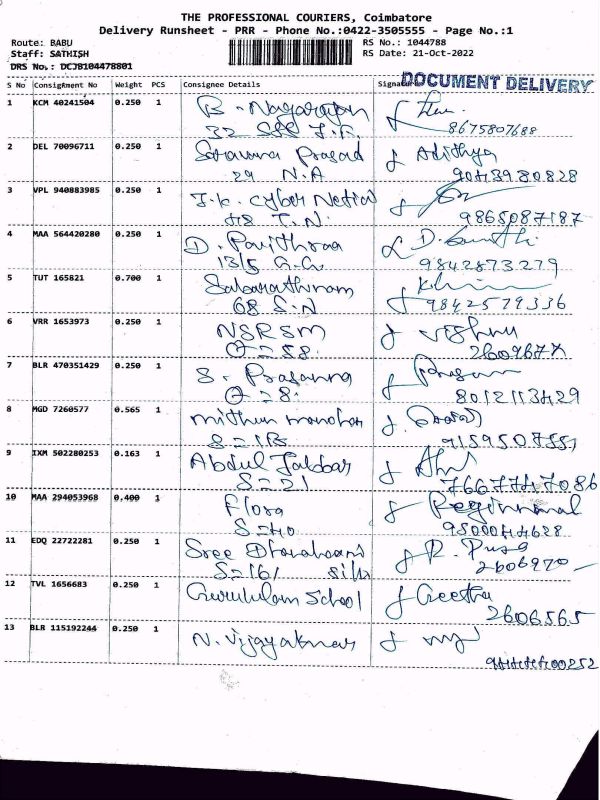 THE PROFESSIONAL COURIERS, Coimbatore
Delivery Runsheet - PRR - Phone No.:0422-3505555 - Page No.:1
Route: BABU
RS No.: 1044788
Staff: SATHISH
RS Date: 21-Oct-2022
DRS No.: DCJB104478801
S No Consignment No Weight PCS Consignee Details Signature
DOCUMENT DELIVERY
1 KCM 40241504 0.250 1 B. Nagarajan
32
8675807688
2 DEL 70096711 0.250 1 Saravana Prasad Adithya
29 N.A
3 VPL 940883985 0.250 1 J.K. Cyber
48 T.N. 9865087187
4 MAA 564420280 0.250 1 D. Pavithraa D.
13/5 G.G. 9842873279
5 TUT 165821 0.700 1 Sabarathinam
68 S.N 9842579336
6 VRR 1653973 0.250 1 NSRSM Vishnu
7 BLR 470351429 0.250 1 S. Prasanna
8012113429
8 MGD 7260577 0.565 1 Mithun Manohar
9 IXM 502280253 0.163 1 Abdul Jabbar
S=21
10 MAA 294053968 0.400 1 Flora
S=40 9500044628
11 EDQ 22722281 0.250 1 Sree
S=161 2606970
12 TVL 1656683 0.250 1 Gurukulam School Geetha
2606565
13 BLR 115192244 0.250 1 N. Vijayakumar